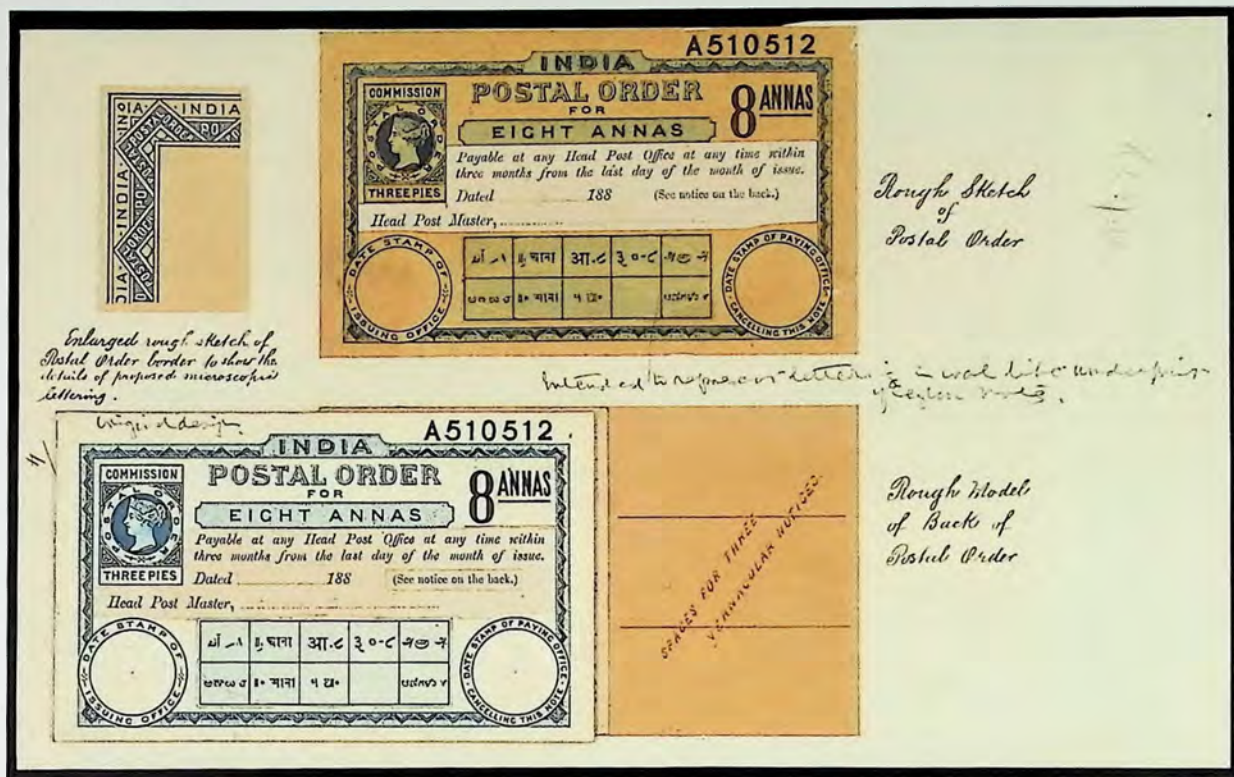 DIA · INDIA
POSTAL ORDE PO
INDIA · INDIA
Enlarged rough sketch of
Postal Order border to show the
details of proposed microscopic
lettering.
A510512
INDIA
COMMISSION
POSTAL ORDER
THREE PIES
POSTAL ORDER
FOR
EIGHT ANNAS
8 ANNAS
Payable at any Head Post Office at any time within
three months from the last day of the month of issue.
Dated 188 (See notice on the back.)
Head Post Master,
DATE STAMP OF ISSUING OFFICE
चाना आ.८ ३ ०-८
DATE STAMP OF PAYING OFFICE
CANCELLING THIS NOTE
Rough Sketch
of
Postal Order
Intended to represent letter
original design
A510512
INDIA
COMMISSION
POSTAL ORDER
THREE PIES
POSTAL ORDER
FOR
EIGHT ANNAS
8 ANNAS
Payable at any Head Post Office at any time within
three months from the last day of the month of issue.
Dated 188 (See notice on the back.)
Head Post Master,
DATE STAMP OF ISSUING OFFICE
चाना आ.८ ३ ०-८
DATE STAMP OF PAYING OFFICE
CANCELLING THIS NOTE
SPACES FOR THREE
VERNACULAR NOTICES.
Rough Model
of Back of
Postal Order